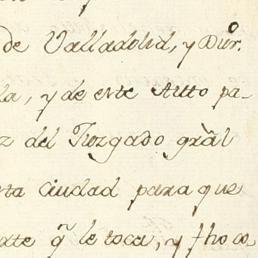 de Valladolid, y Dūr.
la, y de este Auto pa-
z del Juzgado grāl
sta Ciudad para que
arte q̄ le toca, y fho co